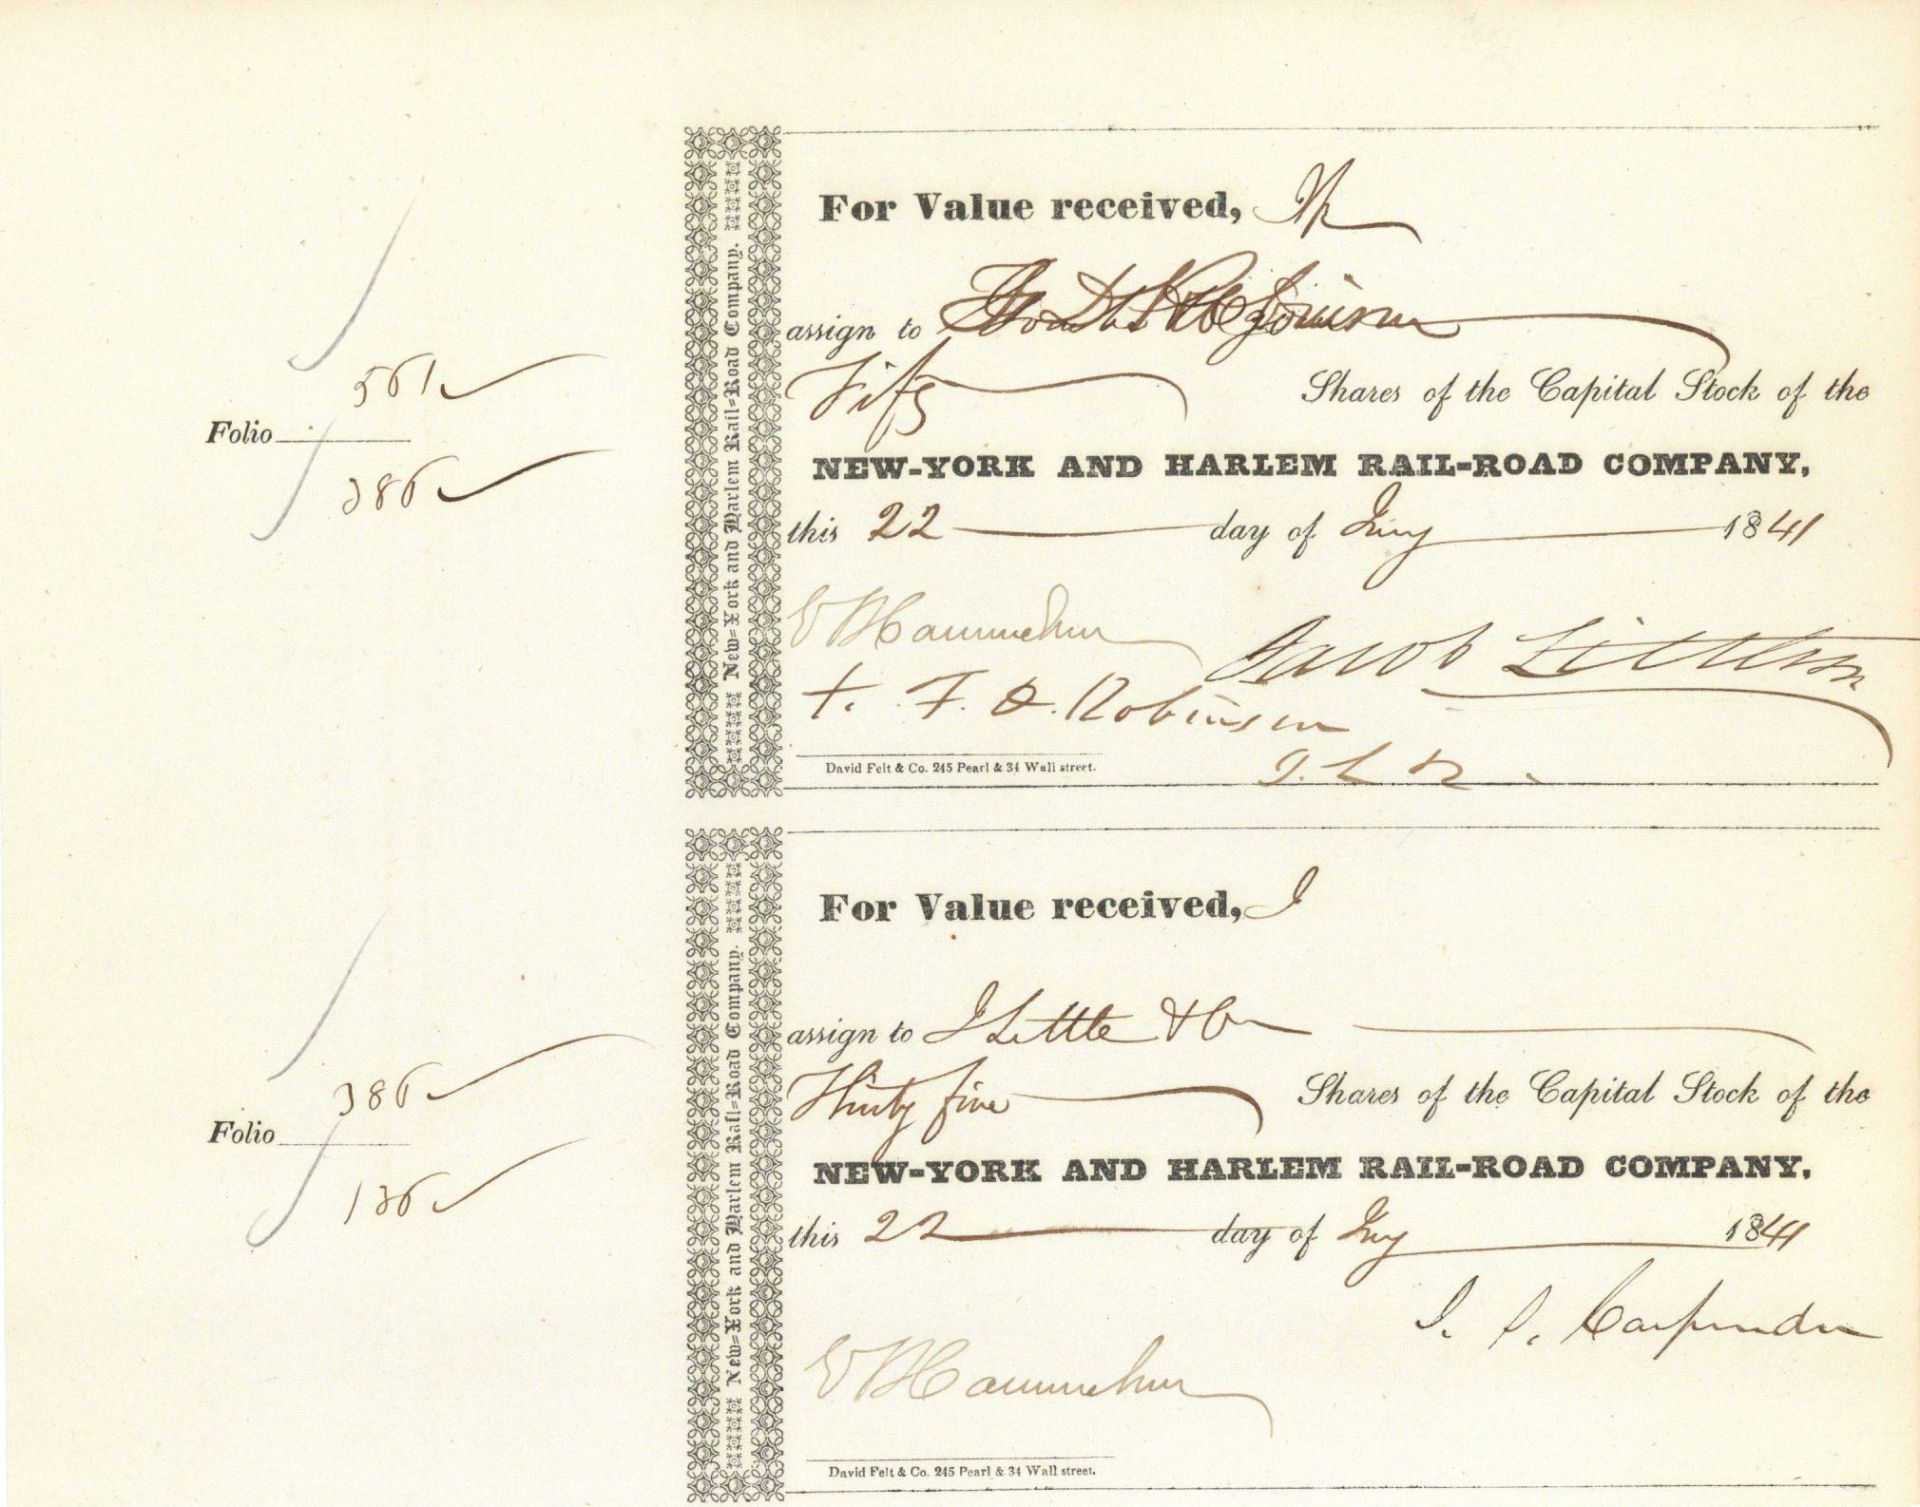 For Value received, We
assign to
Fifty Shares of the Capital Stock of the
NEW-YORK AND HARLEM RAIL-ROAD COMPANY,
this 22 day of July 1841
Folio
561
386
Jacob Little
F. Robinson
David Felt & Co. 245 Pearl & 34 Wall street.
New-York and Harlem Rail-Road Company.
For Value received, I
assign to J Little & Co
Thirty five Shares of the Capital Stock of the
NEW-YORK AND HARLEM RAIL-ROAD COMPANY,
this 22 day of July 1841
Folio
386
136
David Felt & Co. 245 Pearl & 34 Wall street.
New-York and Harlem Rail-Road Company.